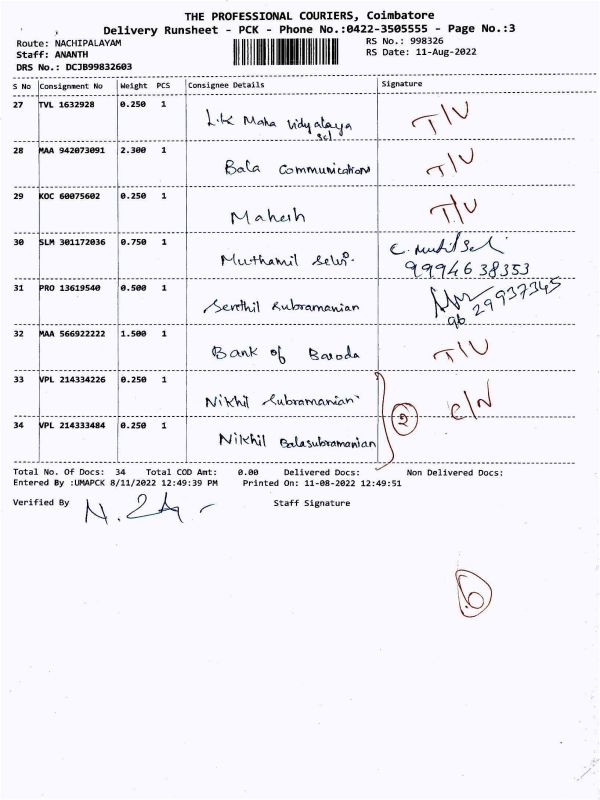 THE PROFESSIONAL COURIERS, Coimbatore
Delivery Runsheet - PCK - Phone No.:0422-3505555 - Page No.:3
Route: NACHIPALAYAM RS No.: 998326
Staff: ANANTH RS Date: 11-Aug-2022
DRS No.: DCJB99832603
S No Consignment No Weight PCS Consignee Details Signature
27 TVL 1632928 0.250 1 L.K Maha Vidyalaya T/U
scl.
28 MAA 942073091 2.300 1 Bala Communications T/U
29 KOC 60075602 0.250 1 Mahesh T/U
30 SLM 301172036 0.750 1 Muthamil Selvi.
9994638353
31 PRO 13619540 0.500 1 Senthil Subramanian
96 29937345
32 MAA 566922222 1.500 1 Bank of Baroda T/U
33 VPL 214334226 0.250 1 Nikhil Subramanian
2 C/N
34 VPL 214333484 0.250 1 Nikhil Balasubramanian
Total No. Of Docs: 34 Total COD Amt: 0.00 Delivered Docs: Non Delivered Docs:
Entered By :UMAPCK 8/11/2022 12:49:39 PM Printed On: 11-08-2022 12:49:51
Verified By Staff Signature
6